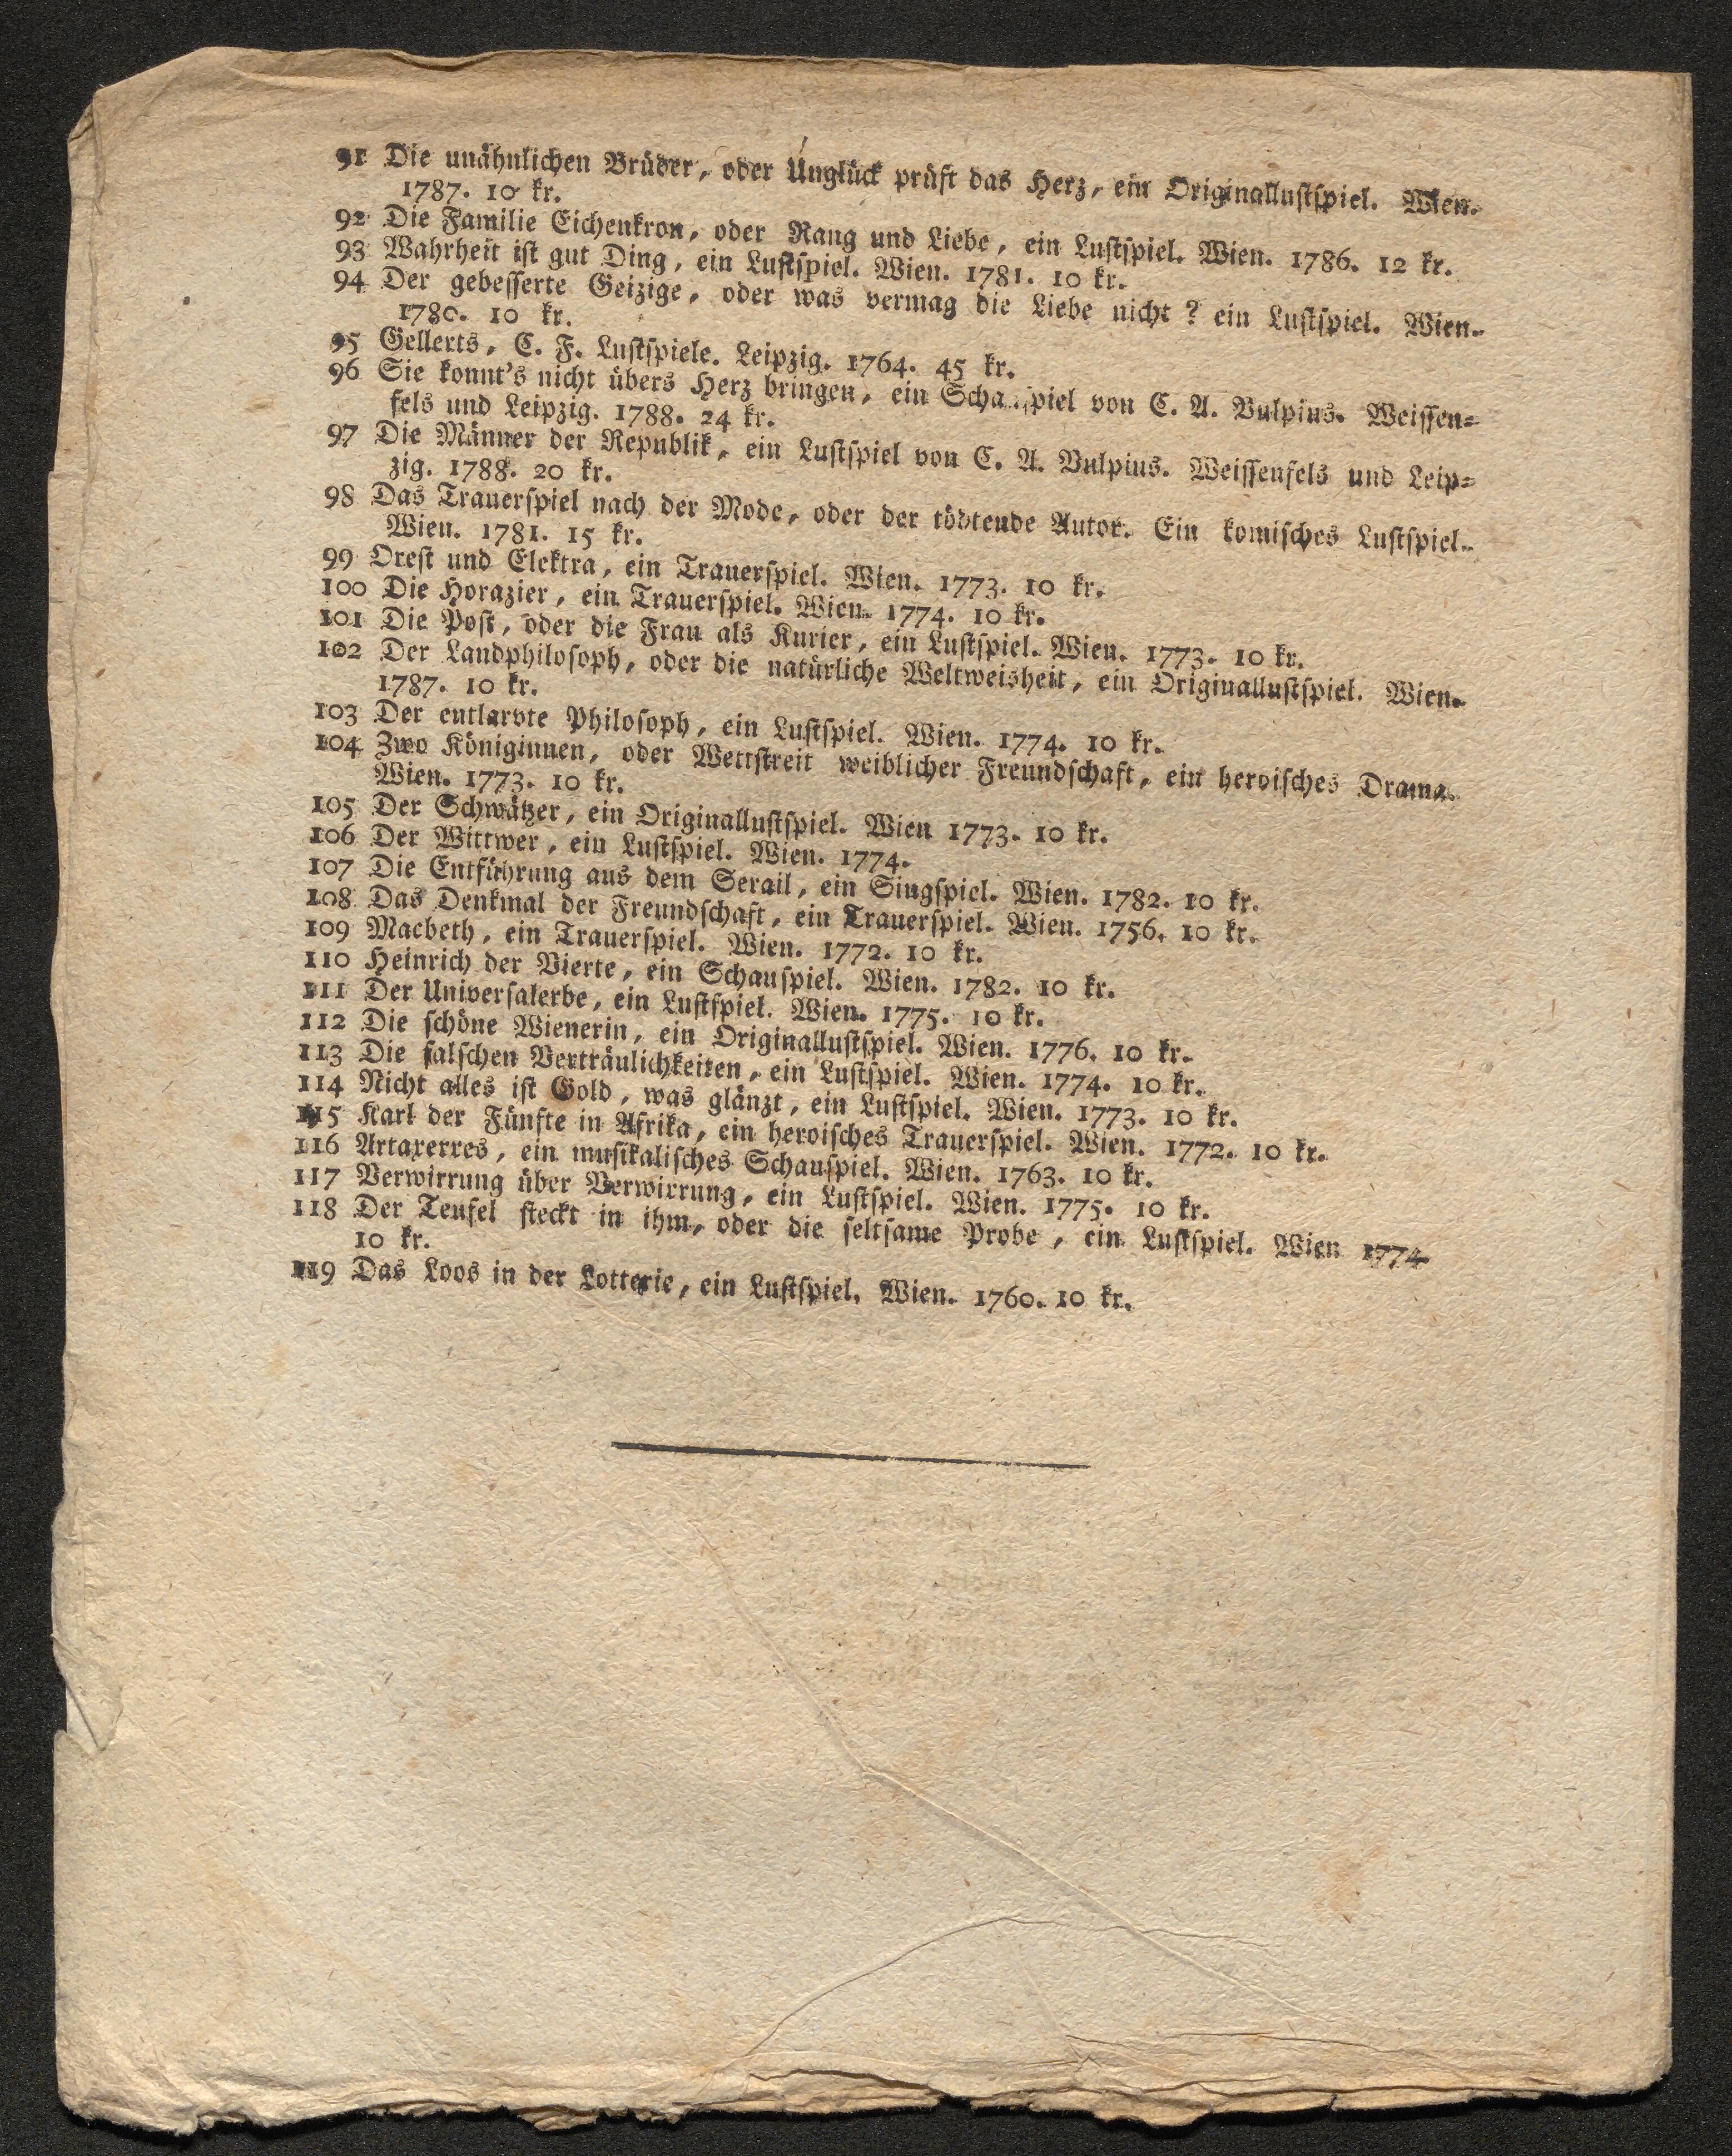 91 Die unähnlichen Brüder, oder Unglück prüft das Herz, ein Originallustspiel. Wien.
1787. 10 kr.
92 Die Familie Eichenkron, oder Rang und Liebe, ein Lustspiel. Wien. 1786. 12 kr.
93 Wahrheit ist gut Ding, ein Lustspiel. Wien. 1781. 10 kr.
94 Der gebesserte Geizige, oder was vermag die Liebe nicht? ein Lustspiel. Wien.
1780. 10 kr.
95 Gellerts, C. F. Lustspiele. Leipzig. 1764. 45 kr.
96 Sie konnt's nicht übers Herz bringen, ein Schauspiel von C. A. Vulpius. Weissen-
fels und Leipzig. 1788. 24 kr.
97 Die Männer der Republik, ein Lustspiel von C. A. Vulpius. Weissenfels und Leip-
zig. 1788. 20 kr.
98 Das Trauerspiel nach der Mode, oder der tödtende Autor. Ein komisches Lustspiel.
Wien. 1781. 15 kr.
99 Orest und Elektra, ein Trauerspiel. Wien. 1773. 10 kr.
100 Die Horazier, ein Trauerspiel. Wien. 1774. 10 kr.
101 Die Post, oder die Frau als Kurier, ein Lustspiel. Wien. 1773. 10 kr.
102 Der Landphilosoph, oder die natürliche Weltweisheit, ein Originallustspiel. Wien.
1787. 10 kr.
103 Der entlarvte Philosoph, ein Lustspiel. Wien. 1774. 10 kr.
104 Zwo Königinnen, oder Wettstreit weiblicher Freundschaft, ein heroisches Drama.
Wien. 1773. 10 kr.
105 Der Schwätzer, ein Originallustspiel. Wien 1773. 10 kr.
106 Der Wittwer, ein Lustspiel. Wien. 1774.
107 Die Entführung aus dem Serail, ein Singspiel. Wien. 1782. 10 kr.
108 Das Denkmal der Freundschaft, ein Trauerspiel. Wien. 1756. 10 kr.
109 Macbeth, ein Trauerspiel. Wien. 1772. 10 kr.
110 Heinrich der Vierte, ein Schauspiel. Wien. 1782. 10 kr.
111 Der Universalerbe, ein Lustspiel. Wien. 1775. 10 kr.
112 Die schöne Wienerin, ein Originallustspiel. Wien. 1776. 10 kr.
113 Die falschen Verträulichkeiten, ein Lustspiel. Wien. 1774. 10 kr.
114 Nicht alles ist Gold, was glänzt, ein Lustspiel. Wien. 1773. 10 kr.
115 Karl der Fünfte in Afrika, ein heroisches Trauerspiel. Wien. 1772. 10 kr.
116 Artaxerxes, ein musikalisches Schauspiel. Wien. 1763. 10 kr.
117 Verwirrung über Verwirrung, ein Lustspiel. Wien. 1775. 10 kr.
118 Der Teufel steckt in ihm, oder die seltsame Probe, ein Lustspiel. Wien 1774.
10 kr.
119 Das Loos in der Lotterie, ein Lustspiel. Wien. 1760. 10 kr.